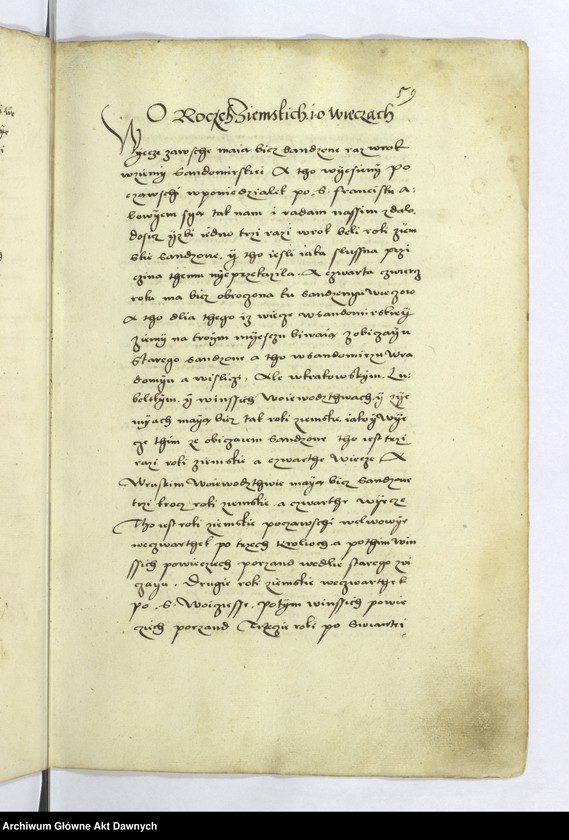 59
O Roczech Ziemskich i o wieczach
Wyecze zawsche maia bicz sandzone raz wrok
wziemy Sandomirskiei A tho wyesieny po
czawschi wponiedzialek po .S. Francisku A-
bowyem sya tak nam i radam nassim zdalo,
dosicz yzbi iedno trzi razi wrok beli roki ziem
skie sandzone, y tho iesli iaka slussna przi
czina themu nyeprzekazila. A czwarta czwiercz
roku ma bicz obroczona ku sandzenyu wieczow
A tho dlia thego iz wiecze wsandomirskiey
ziemy na troim myesczu biwaia zobiczaiu
starego sandzone a tho wsandomirzu wra
domyu a wislici. Ale wkrakowskym. Lu-
belskym. y winssich woiewodzthwach y zye
myach maya bicz tak roki ziemskie iako y wye
cze thim ze obiczaiem sandzone tho iest trzi
razi roki ziemskie a czwarthe wiecze A
Wruskim woiewodzthwie maya bicz sandzone
trzi krocz roki ziemskie a czwarthe wyecze
Tho iest roki ziemskie poczawschi welwowye
weczwarthek po trzech krolioch a pothim win
ssich powieciech porzand wedlie starego zwi
czayu. Drugie roki ziemskie weczwarthek
po .S. Woiciesse, potym winssich powie
ciech porzand Trzecie roki po Swiantei
Archiwum Główne Akt Dawnych